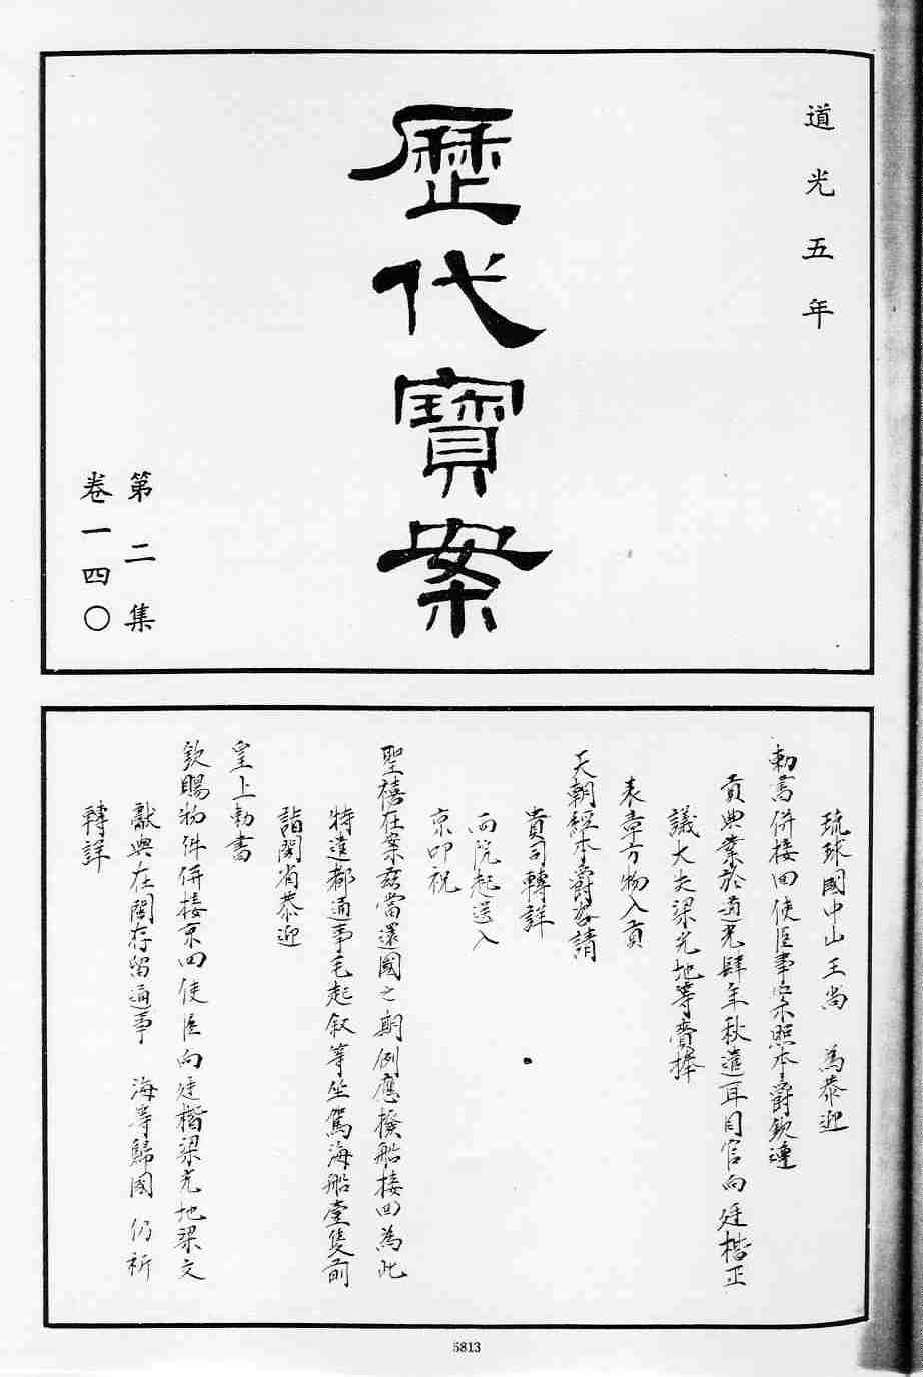 道光五年
歷代寶案
第二集
卷一四〇
琉球國中山王尚 為恭迎
勅書併接回使臣事案照本爵欽遵
貢典業於道光肆年秋遣耳目官向廷楷正
議大夫梁光地等賫捧
表章方物入貢
天朝經本爵咨請
貴司轉詳
兩院起送入
京叩祝
聖禧在案茲當還國之期例應撥船接回為此
特遣都通事毛起叙等坐駕海船壹隻前
詣閩省恭迎
皇上勅書
欽賜物件併接京回使臣向廷楷梁光地梁文
獻與在閩存留通事 海等歸國 仍祈
轉詳
5813